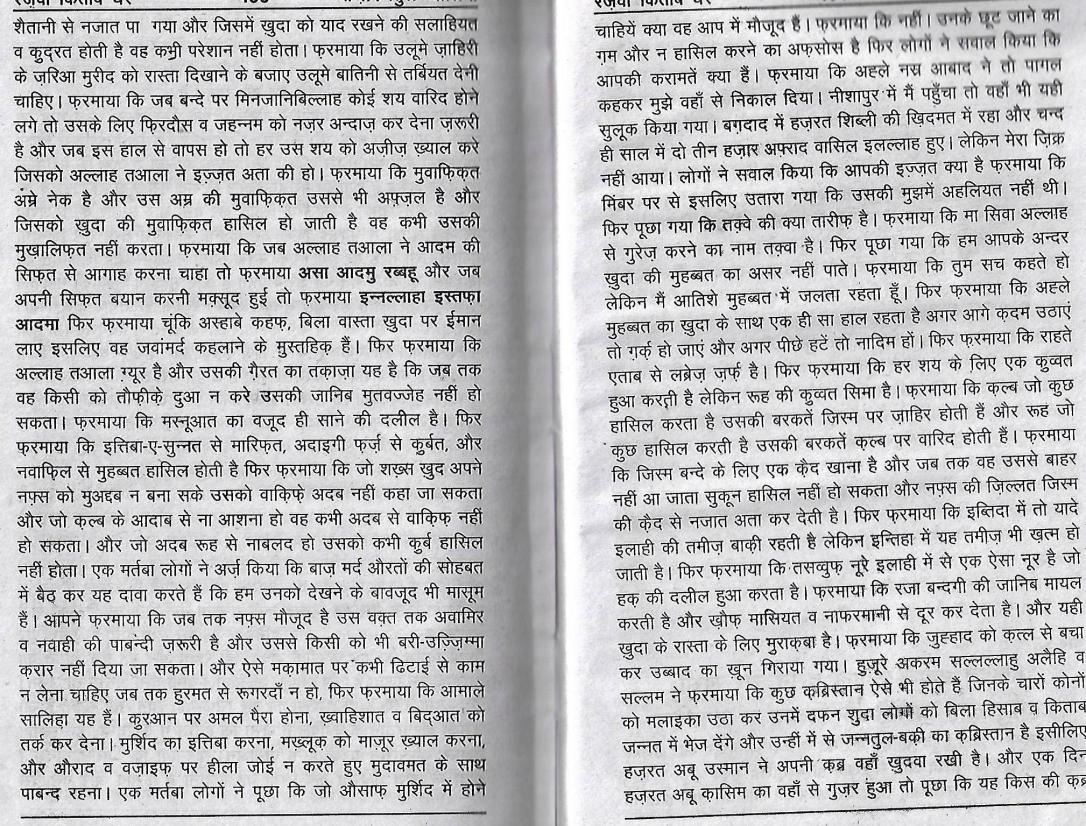 शैतानी से नजात पा गया और जिसमें ख़ुदा को याद रखने की सलाहियत
व क़ुदरत होती है वह कभी परेशान नहीं होता। फ़रमाया कि उलूमे ज़ाहिरी
के ज़रिआ मुरीद को रास्ता दिखाने के बजाए उलूमे बातिनी से तर्बियत देनी
चाहिए। फ़रमाया कि जब बन्दे पर मिनजानिबिल्लाह कोई शय वारिद होने
लगे तो उसके लिए फ़िरदौस व जहन्नम को नज़र अन्दाज़ कर देना ज़रूरी
है और जब इस हाल से वापस हो तो हर उस शय को अज़ीज़ ख़्याल करे
जिसको अल्लाह तआला ने इज़्ज़त अता की हो। फ़रमाया कि मुवाफ़िक़त
अम्रे नेक है और उस अम्र की मुवाफ़िक़त उससे भी अफ़्ज़ल है और
जिसको ख़ुदा की मुवाफ़िक़त हासिल हो जाती है वह कभी उसकी
मुख़ालिफ़त नहीं करता। फ़रमाया कि जब अल्लाह तआला ने आदम की
सिफ़त से आगाह करना चाहा तो फ़रमाया असा आदमु रब्बहू और जब
अपनी सिफ़त बयान करनी मक़्सूद हुई तो फ़रमाया इन्नल्लाहा इस्तफ़ा
आदमा फिर फ़रमाया चूंकि अस्हाबे कहफ़, बिला वास्ता ख़ुदा पर ईमान
लाए इसलिए वह जवांमर्द कहलाने के मुस्तहिक़ हैं। फिर फ़रमाया कि
अल्लाह तआला ग़्यूर है और उसकी ग़ैरत का तक़ाज़ा यह है कि जब तक
वह किसी को तौफ़ीक़े दुआ न करे उसकी जानिब मुतवज्जेह नहीं हो
सकता। फ़रमाया कि मस्नूआत का वजूद ही साने की दलील है। फिर
फ़रमाया कि इत्तिबा-ए-सुन्नत से मारिफ़त, अदाइगी फ़र्ज़ से क़ुर्बत, और
नवाफ़िल से मुहब्बत हासिल होती है फिर फ़रमाया कि जो शख़्स ख़ुद अपने
नफ़्स को मुअद्दब न बना सके उसको वाक़िफ़े अदब नहीं कहा जा सकता
और जो क़ल्ब के आदाब से ना आशना हो वह कभी अदब से वाक़िफ़ नहीं
हो सकता। और जो अदब रूह से नाबलद हो उसको कभी क़ुर्ब हासिल
नहीं होता। एक मर्तबा लोगों ने अर्ज़ किया कि बाज़ मर्द औरतों की सोहबत
में बैठ कर यह दावा करते हैं कि हम उनको देखने के बावजूद भी मासूम
हैं। आपने फ़रमाया कि जब तक नफ़्स मौजूद है उस वक़्त तक अवामिर
व नवाही की पाबन्दी ज़रूरी है और उससे किसी को भी बरी-उज़्ज़िम्मा
क़रार नहीं दिया जा सकता। और ऐसे मक़ामात पर कभी ढिटाई से काम
न लेना चाहिए जब तक हुरमत से रूगरदाँ न हो, फिर फ़रमाया कि आमाले
सालिहा यह हैं। क़ुरआन पर अमल पैरा होना, ख़्वाहिशात व बिद्आत को
तर्क कर देना। मुर्शिद का इत्तिबा करना, मख़्लूक़ को माज़ूर ख़्याल करना,
और औराद व वज़ाइफ़ पर हीला जोई न करते हुए मुदावमत के साथ
पाबन्द रहना। एक मर्तबा लोगों ने पूछा कि जो औसाफ़ मुर्शिद में होने
चाहियें क्या वह आप में मौजूद हैं। फ़रमाया कि नहीं। उनके छूट जाने का
ग़म और न हासिल करने का अफ़सोस है फिर लोगों ने सवाल किया कि
आपकी करामतें क्या हैं। फ़रमाया कि अह्ले नस्र आबाद ने तो पागल
कहकर मुझे वहाँ से निकाल दिया। नीशापुर में मैं पहुँचा तो वहाँ भी यही
सुलूक किया गया। बग़दाद में हज़रत शिब्ली की ख़िदमत में रहा और चन्द
ही साल में दो तीन हज़ार अफ़्राद वासिल इलल्लाह हुए। लेकिन मेरा ज़िक्र
नहीं आया। लोगों ने सवाल किया कि आपकी इज़्ज़त क्या है फ़रमाया कि
मिंबर पर से इसलिए उतारा गया कि उसकी मुझमें अहलियत नहीं थी।
फिर पूछा गया कि तक़्वे की क्या तारीफ़ है। फ़रमाया कि मा सिवा अल्लाह
से गुरेज़ करने का नाम तक़्वा है। फिर पूछा गया कि हम आपके अन्दर
ख़ुदा की मुहब्बत का असर नहीं पाते। फ़रमाया कि तुम सच कहते हो
लेकिन मैं आतिशे मुहब्बत में जलता रहता हूँ। फिर फ़रमाया कि अह्ले
मुहब्बत का ख़ुदा के साथ एक ही सा हाल रहता है अगर आगे क़दम उठाएं
तो ग़र्क़ हो जाएं और अगर पीछे हटें तो नादिम हों। फिर फ़रमाया कि राहते
एताब से लब्रेज़ ज़र्फ़ है। फिर फ़रमाया कि हर शय के लिए एक क़ुव्वत
हुआ करती है लेकिन रूह की क़ुव्वत सिमा है। फ़रमाया कि क़ल्ब जो कुछ
हासिल करता है उसकी बरकतें जिस्म पर ज़ाहिर होती हैं और रूह जो
कुछ हासिल करती है उसकी बरकतें क़ल्ब पर वारिद होती हैं। फ़रमाया
कि जिस्म बन्दे के लिए एक क़ैद खाना है और जब तक वह उससे बाहर
नहीं आ जाता सुकून हासिल नहीं हो सकता और नफ़्स की ज़िल्लत जिस्म
की क़ैद से नजात अता कर देती है। फिर फ़रमाया कि इब्तिदा में तो यादे
इलाही की तमीज़ बाक़ी रहती है लेकिन इन्तिहा में यह तमीज़ भी ख़त्म हो
जाती है। फिर फ़रमाया कि तसव्वुफ़ नूरे इलाही में से एक ऐसा नूर है जो
हक़ की दलील हुआ करता है। फ़रमाया कि रजा बन्दगी की जानिब मायल
करती है और ख़ौफ़ मासियत व नाफरमानी से दूर कर देता है। और यही
ख़ुदा के रास्ता के लिए मुराक़बा है। फ़रमाया कि ज़ुह्हाद को क़त्ल से बचा
कर उब्बाद का ख़ून गिराया गया। हुज़ूरे अकरम सल्लल्लाहु अलैहि व
सल्लम ने फ़रमाया कि कुछ क़ब्रिस्तान ऐसे भी होते हैं जिनके चारों कोनों
को मलाइका उठा कर उनमें दफन शुदा लोगों को बिला हिसाब व किताब
जन्नत में भेज देंगे और उन्हीं में से जन्नतुल-बक़ी का क़ब्रिस्तान है इसीलिए
हज़रत अबू उस्मान ने अपनी क़ब्र वहाँ ख़ुदवा रखी है। और एक दिन
हज़रत अबू क़ासिम का वहाँ से गुज़र हुआ तो पूछा कि यह किस की क़ब्र